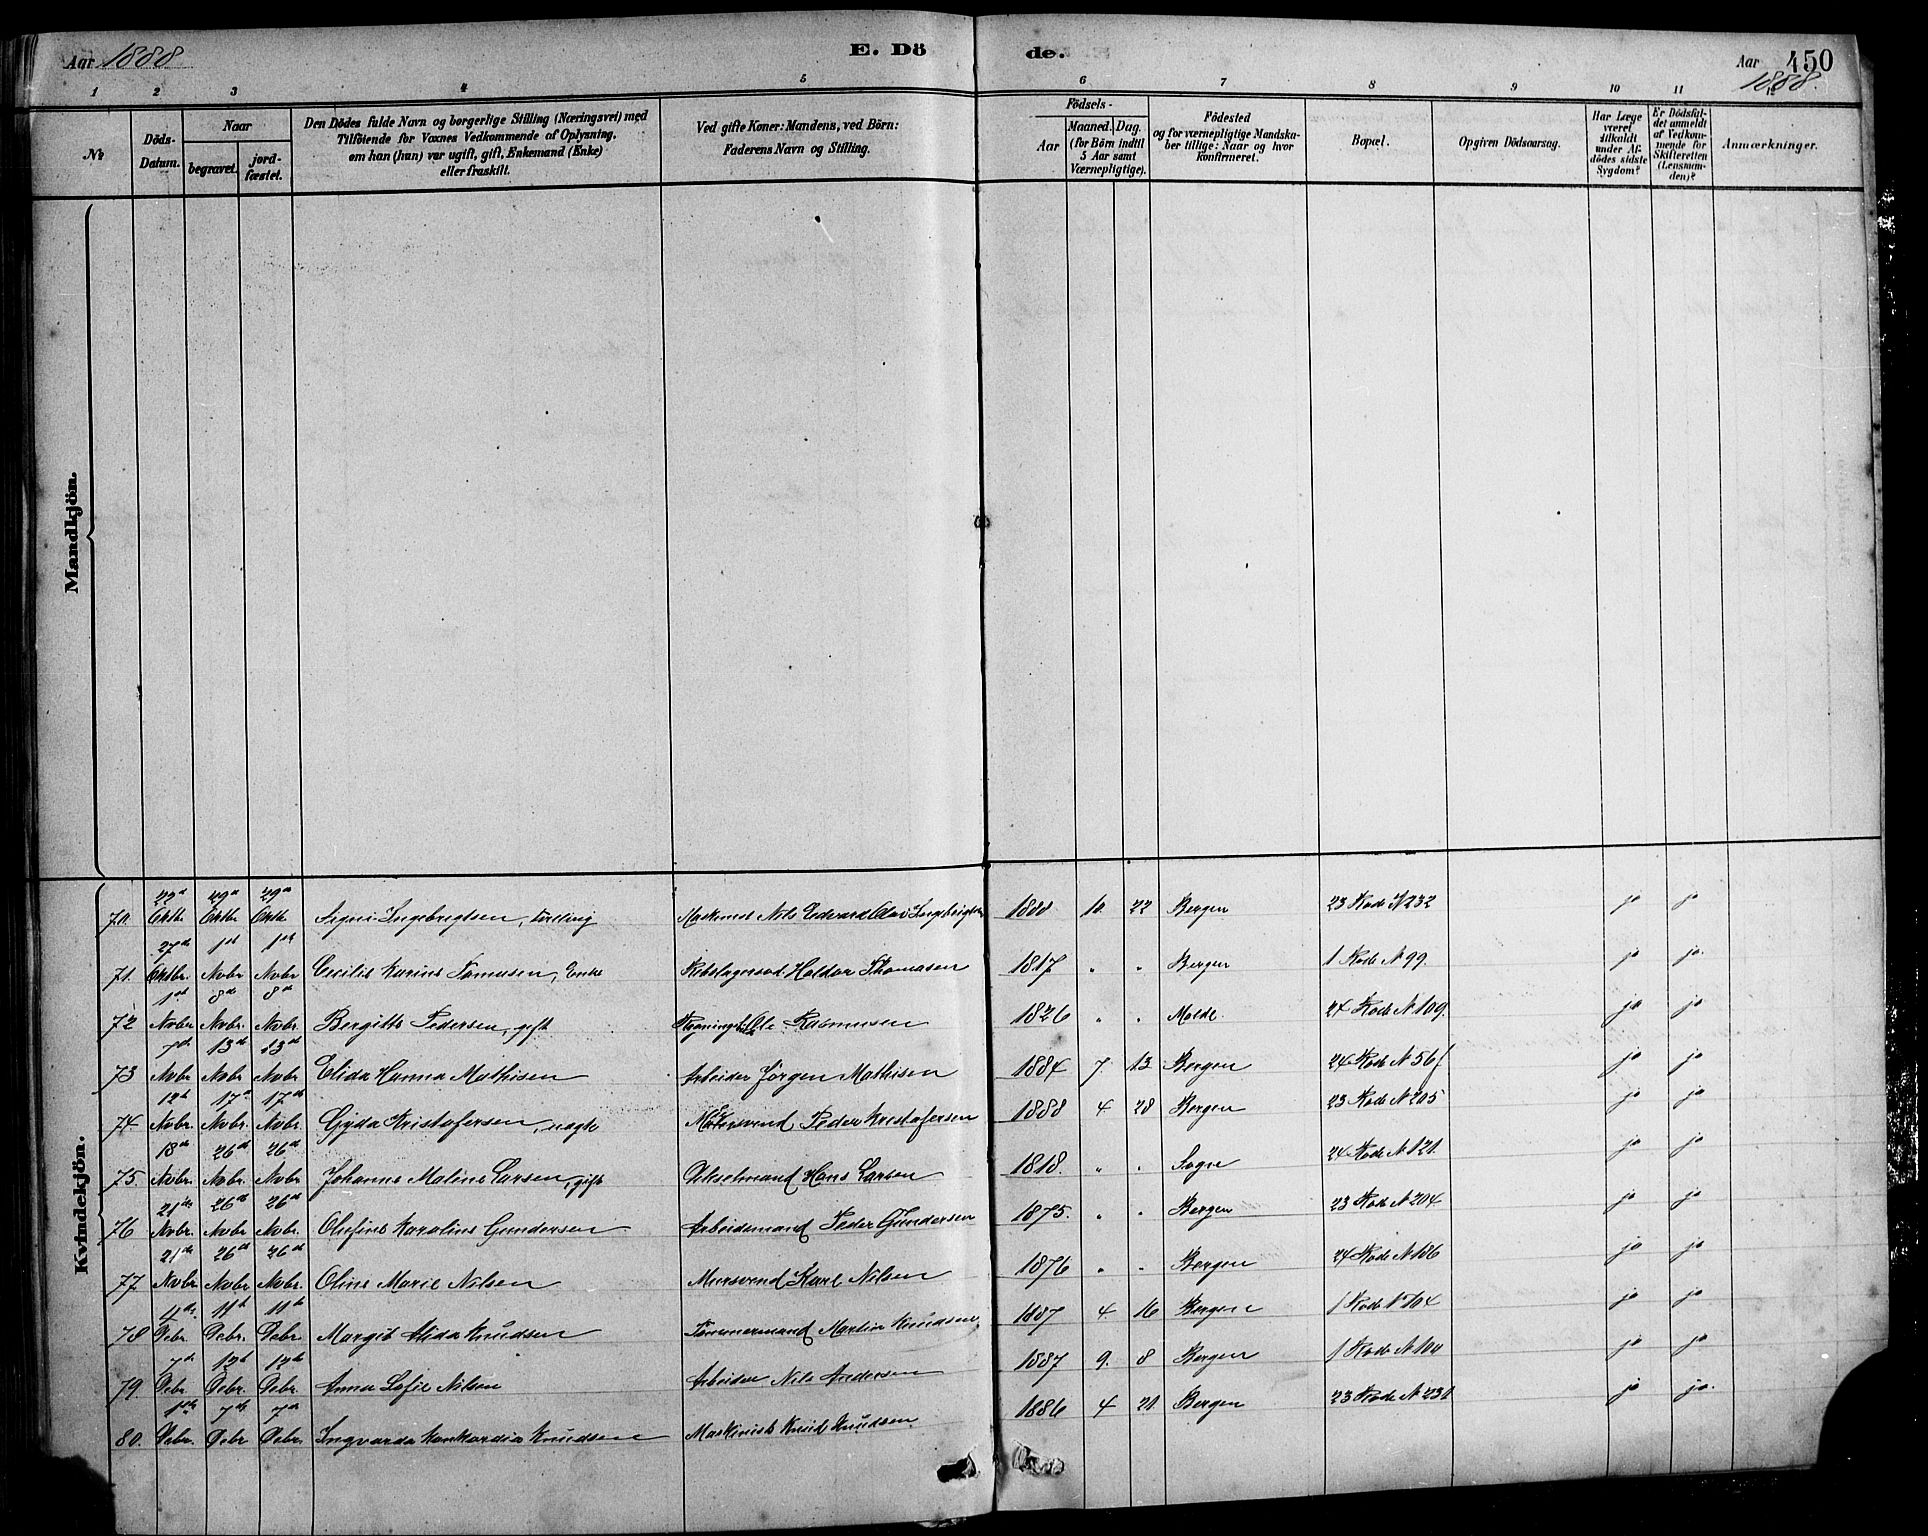 Aar 1888
E. Dö
de.
Aar 1888.
450
1 2 3 4 5 6 7 8 9 10 11 12
№
Döds-Datum.
Naar
begravet.
jord-fæstet.
Den Dödes fulde Navn og borgerlige Stilling (Næringsvei) med
Tilföiende for Voxnes Vedkommende af Oplysning,
om han (hun) var ugift, gift, Enkemand (Enke)
eller fraskilt.
Ved gifte Koner: Mandens, ved Börn:
Faderens Navn og Stilling.
Födsels-
Aar
Maaned. Dag.
(for Börn indtil
5 Aar samt
Værnepligtige).
Födested
og for værnepligtige Mandska-
ber tillige: Naar og hvor
konfirmeret.
Bopæl.
Opgiven Dödsaarsag.
Har Læge
været
tilkaldt
under Af-
dödes sidste
Sygdom?
Er Dödsfal-
det anmeldt
af Vedkom-
mende for
Skifteretten
(Lensman-
den)?
Anmærkninger.
Mandkjön.
Kvindekjön.
70. 22d Oktbr 29d Oktbr 29d Oktbr Signe Ingebregtsen, tvilling Maskinist Nils Edvard Olai Ingebrigtsen 1888 10. 22 Bergen 23 Rode N 232 ja ja
71. 27de Oktbr. 1st Novbr 1st Novbr Cecilie Karine Tomasen, Enke Rebslagersvd Haldor Thomasen 1817 " " Bergen 1 Rode N 99. ja ja.
72 1st Novbr 8de Novbr. 8de Novbr. Bergitte Pedersen, gift Ole Rasmusen 1826 " " Molde. 24 Rode N 109. ja ja
73 7de Novbr 13de Novbr 13de Novbr Elida Hanna Mathisen Arbeider Jörgen Mathisen 1884 7 13 Bergen 24 Rode N 56f ja ja
74. 12t Novbr. 17d Novbr. 17de Novbr. Gyda Kristofersen, uægte Peder Kristofersen 1888 4 28 Bergen 23 Rode N 205 ja ja
75. 18de Novbr. 26de Novbr. 26de Novbr Johanne Maline Larsen, gift Hans Larsen 1818. " " Sogn 24 Rode N 121. ja ja
76 21de Novbr. 26de Novbr 26de Novbr. Olufine Karoline Gundersen Arbeidsmand Peder Gundersen 1875. " " Bergen 23 Rode N 204 ja ja
77. 21de Novbr 26de Novbr. 26de Novbr. Oline Marie Nilsen Mursvend Karl Nilsen 1876 " " Bergen 24 Rode N 186 ja ja
78 4de Debr. 11t Debr. 11t Debr Margit Alida Knudsen Tömmermand Martin Knudsen. 1887 4. 16 Bergen 1 Rode N 104 ja ja
79. 7de Debr 12t Debr. 12t Debr. Anna Sofie Nilsen Arbeider Nils Andersen 1887 9. 8 Bergen 1 Rode N 100 ja ja
80. 1ste Debr. 7de Debr 7de Debr. Ingvarda Konkordia Knudsen Maskinist Knud Knudsen. 1886 4 21 Bergen 23 Rode N 230 ja ja.